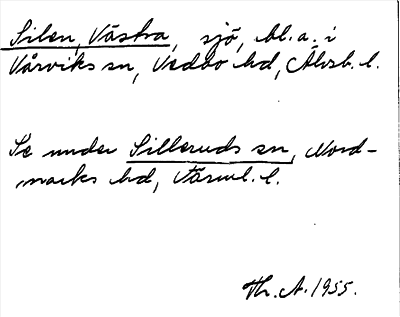 Silen, Västra, sjö, bl.a. i
Vårviks sn, Vedbo hd, Älvsb. l.
Se under Silleruds sn, Nord-
marks hd, Värml. l.
Th. A. 1955.